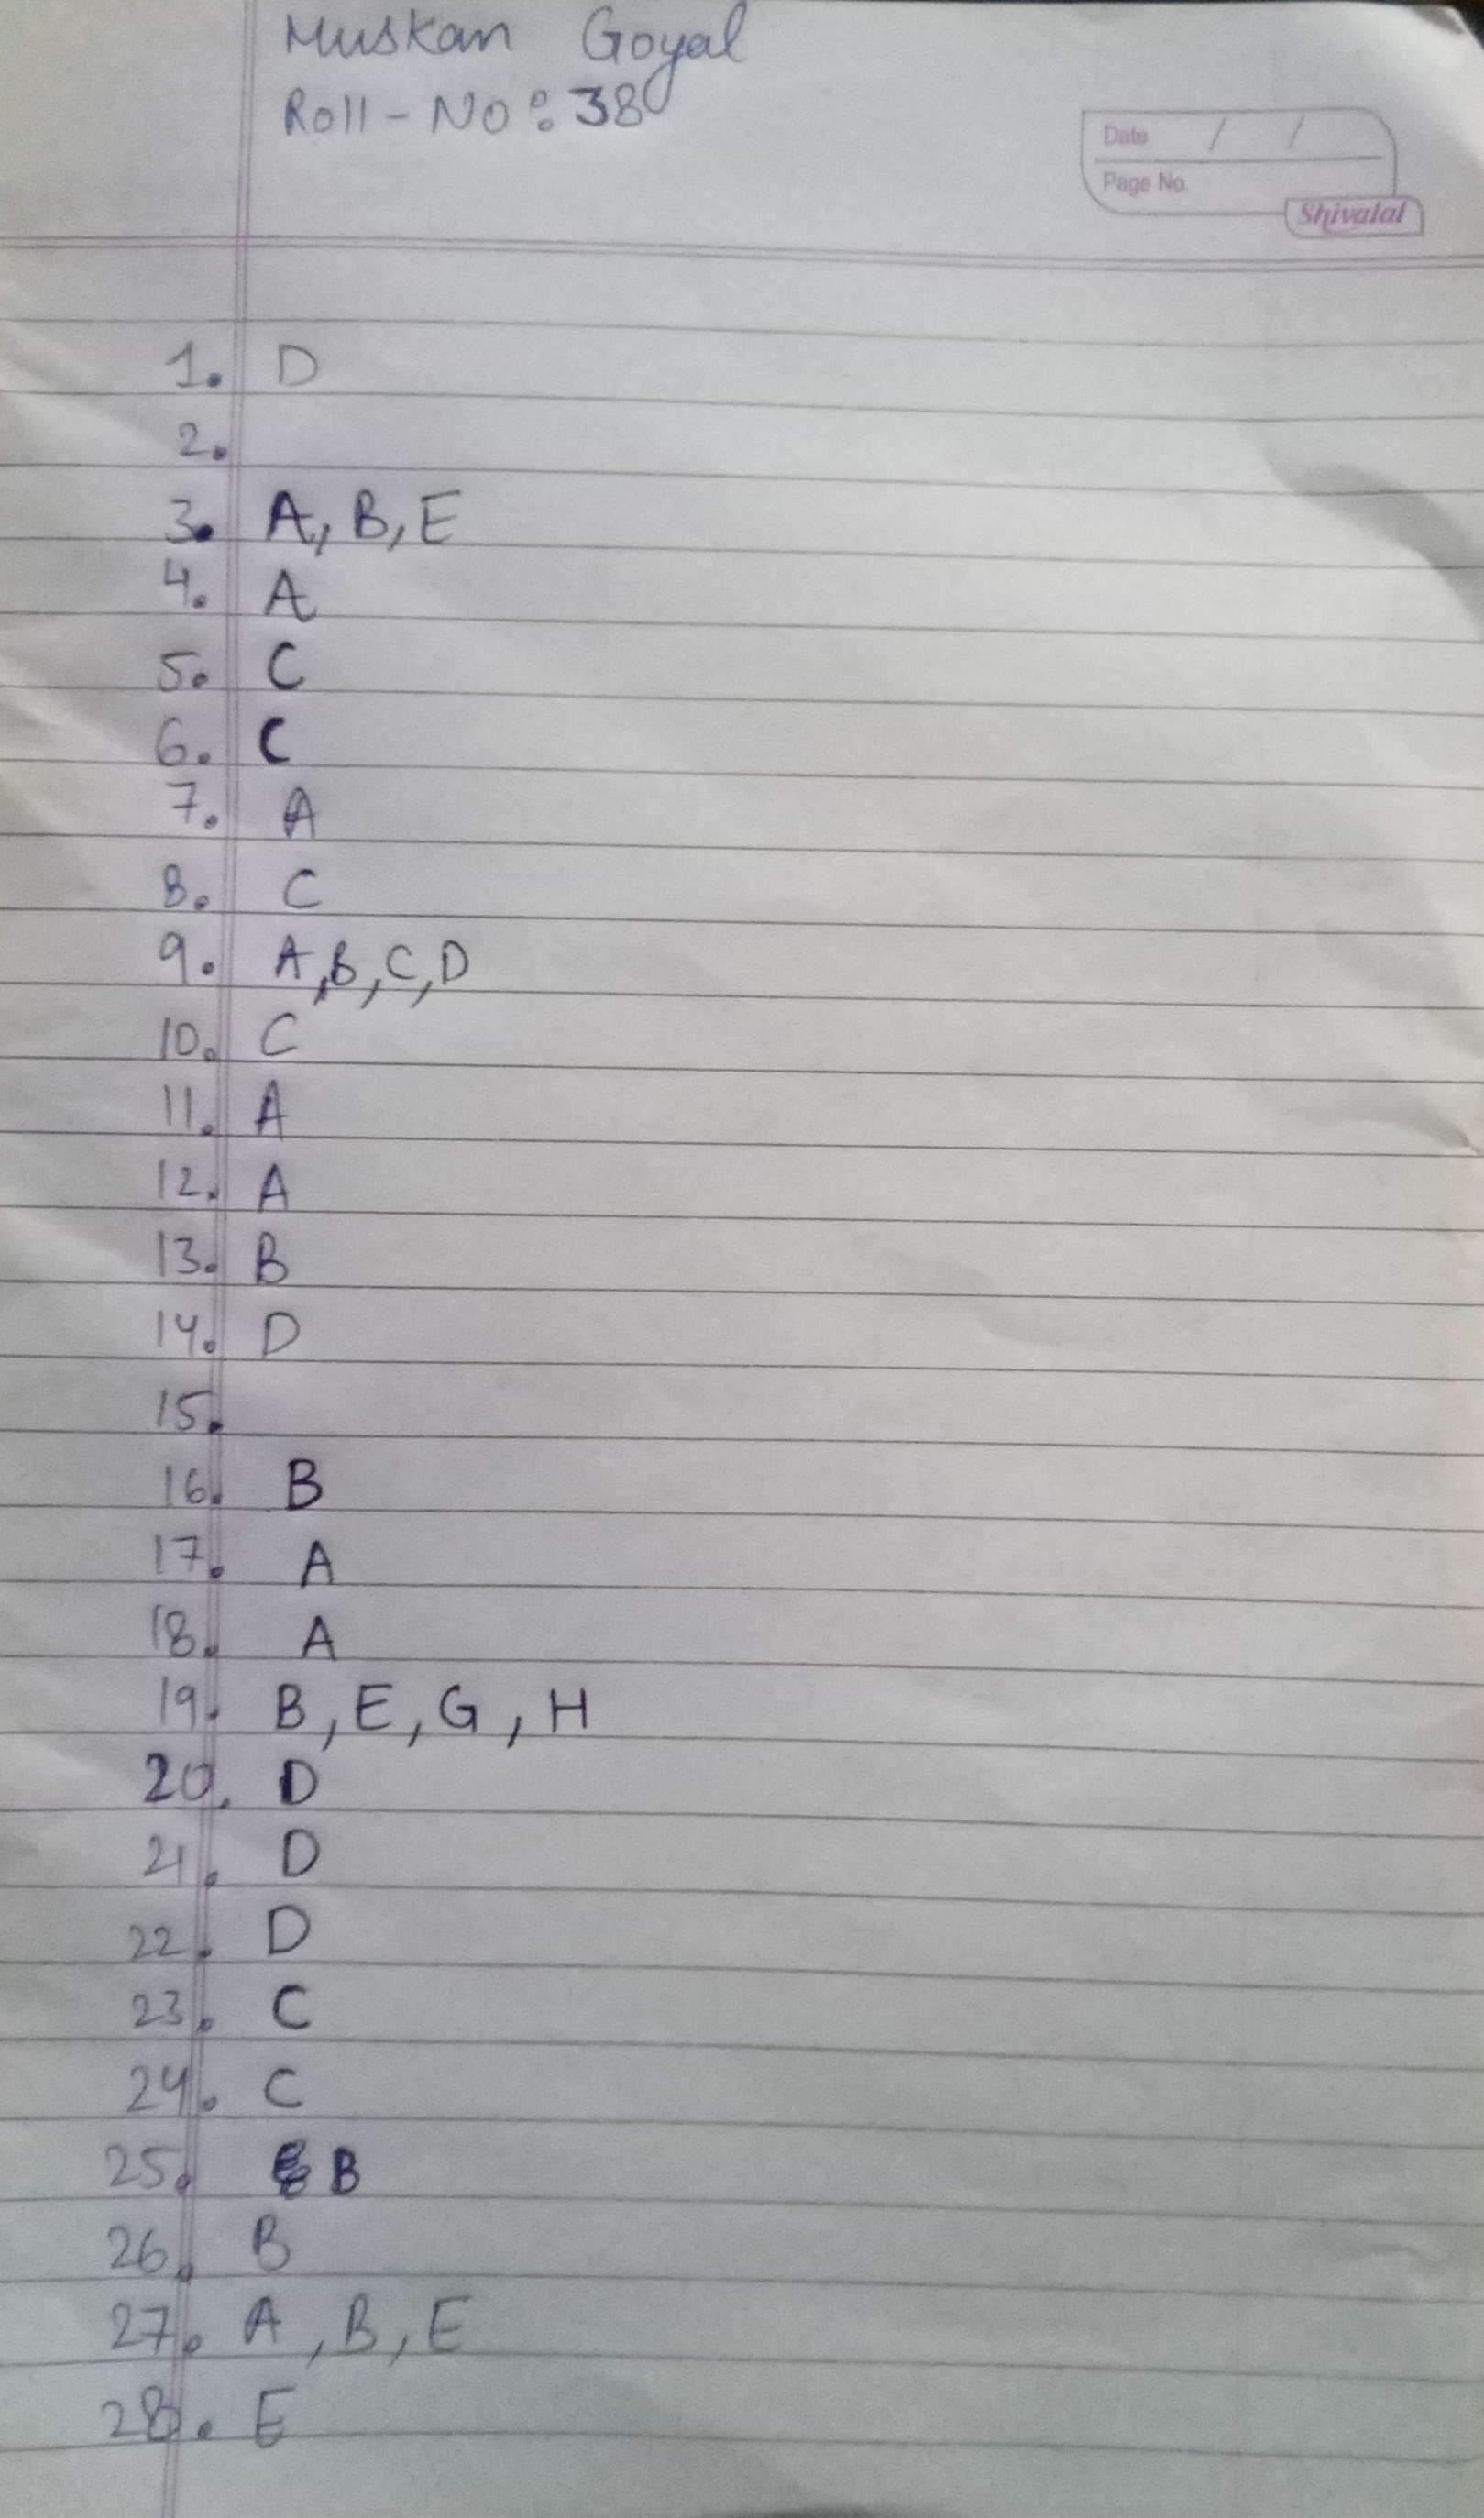 Muskan Goyal
Roll-No: 38
Date / /
Page No.
Shivalal
1. D
2.
3. A, B, E
4. A
5. C
6. C
7. A
8. C
9. A, B, C, D
10. C
11. A
12. A
13. B
14. D
15.
16. B
17. A
18. A
19. B, E, G, H
20. D
21. D
22. D
23. C
24. C
25. B
26. B
27. A, B, E
28. E